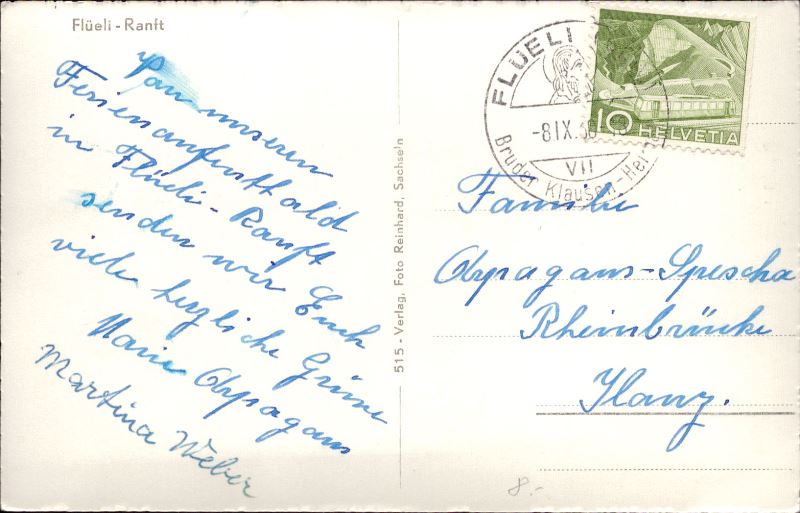 Flüeli - Ranft
Von unseren
Ferienaufenthald
in Flüeli-Ranft
senden wir Euch
viele herzliche Grüsse
Marie Arpagaus
Martina Weber
515 - Verlag, Foto Reinhard, Sachseln
FLÜELI
-8.IX.56
VII
Bruder Klausen-Heim
10 HELVETIA
Familie
Arpagaus-Spescha
Rheinbrücke
Ilanz.
8.-